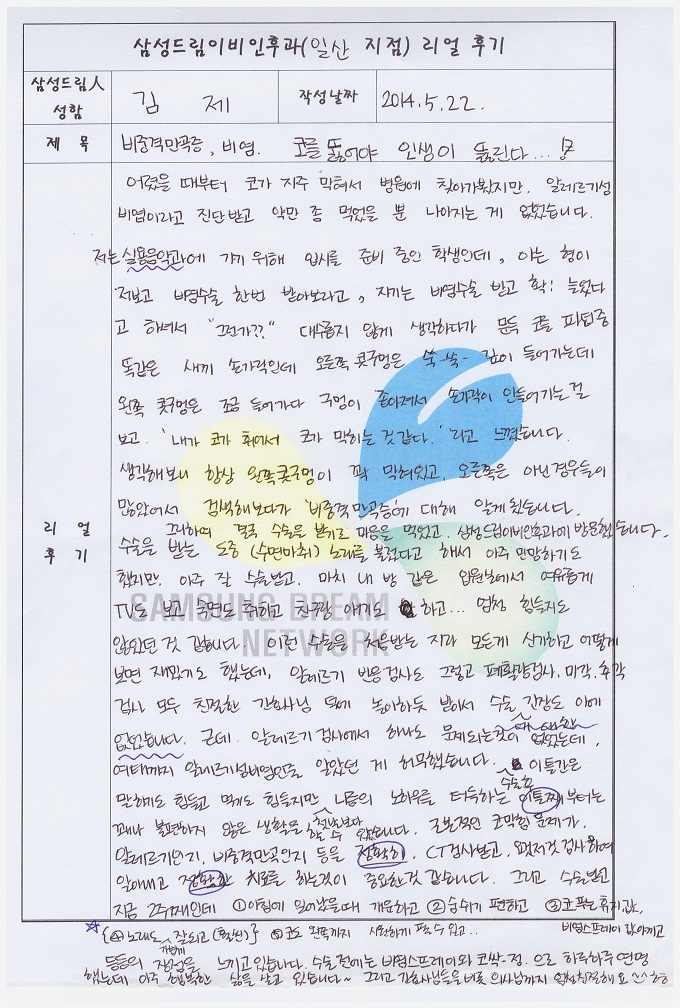 삼성드림이비인후과(일산 지점) 리얼 후기
삼성드림人 성함
김 제
작성날짜
2014.5.22.
제 목
비중격만곡증, 비염. 코를 뚫어야 인생이 뚫린다...
리 얼 후 기
어렸을 때부터 코가 자주 막혀서 병원에 찾아가봤지만, 알레르기성
비염이라고 진단받고 약만 좀 먹었을 뿐 나아지는 게 없었습니다.
저는 실용음악과에 가기 위해 입시를 준비 중인 학생인데, 아는 형이
저보고 비염수술 한번 받아보라고, 자기는 비염수술 받고 확! 늘었다
고 하셔서 "그런가??" 대수롭지 않게 생각하다가 문득 코를 파던중
똑같은 새끼 손가락인데 오른쪽 콧구멍은 쑥-쑥- 깊이 들어가는데
왼쪽 콧구멍은 조금 들어가다 구멍이 좁아져서 손가락이 안들어가는걸
보고. '내가 코가 휘어서 코가 막히는것 같다.' 라고 느꼈습니다.
생각해보니 항상 왼쪽콧구멍이 꽉 막혀있고, 오른쪽은 아닌경우들이
많았어서 검색해보다가 '비중격만곡증'에 대해 알게됐습니다.
그리하여 결국 수술을 받기로 마음을 먹었고, 삼성드림이비인후과에 방문했습니다.
수술을 받는 도중 (수면마취) 노래를 불렀다고 해서 아주 민망하기도
했지만, 아주 잘 수술받고, 마치 내 방 같은 입원실에서 여유롭게
TV도 보고 숙면도 취하고 친구랑 얘기도 하고... 엄청 힘들지도
않았던 것 같습니다. 이런 수술을 처음받는 지라 모든게 신기하고 어떻게
보면 재밌기도 했는데, 알레르기 반응검사도 그렇고 폐활량검사, 미각, 후각
검사 모두 친절한 간호사님 덕에 놀이하듯 받아서 수술에 대한 긴장도 아예
없었습니다. 근데. 알레르기 검사에서 하나도 문제되는것이 없었는데,
여태까지 알레르기성비염인줄 알았던 게 허무했습니다. 수술후 이틀간은
말하기도 힘들고 먹기도 힘들지만 나름의 노하우를 터득하는 이틀째부터는
꽤나 불편하지 않은 생활을 첫날보다 할 수 있습니다. 근본적인 코막힘 문제가,
알레르기인지, 비중격만곡인지 등을 정확히, CT검사받고, 요것저것 검사하여
알아내고 정확한 치료를 하는것이 중요한것 같습니다. 그리고 수술받고
지금 2주째인데 ①아침에 일어났을때 개운하고 ②숨쉬기 편하고 ③코푸는 휴지값,
비염스프레이 값 아끼고
☆{④노래도 잘되고 (특장점)} ⑤코도 왼쪽까지 시원하게 풀 수 있고..
등등의 장점을 느끼고 있습니다. 수술전에는 비염스프레이와 코싹-정.으로 하루하루 연명
했는데 아주 행복한 삶을 살고 있습니다~ 그리고 간호사님들을 비롯 의사님까지 엄청친절해요
SAMSUNG DREAM
NETWORK